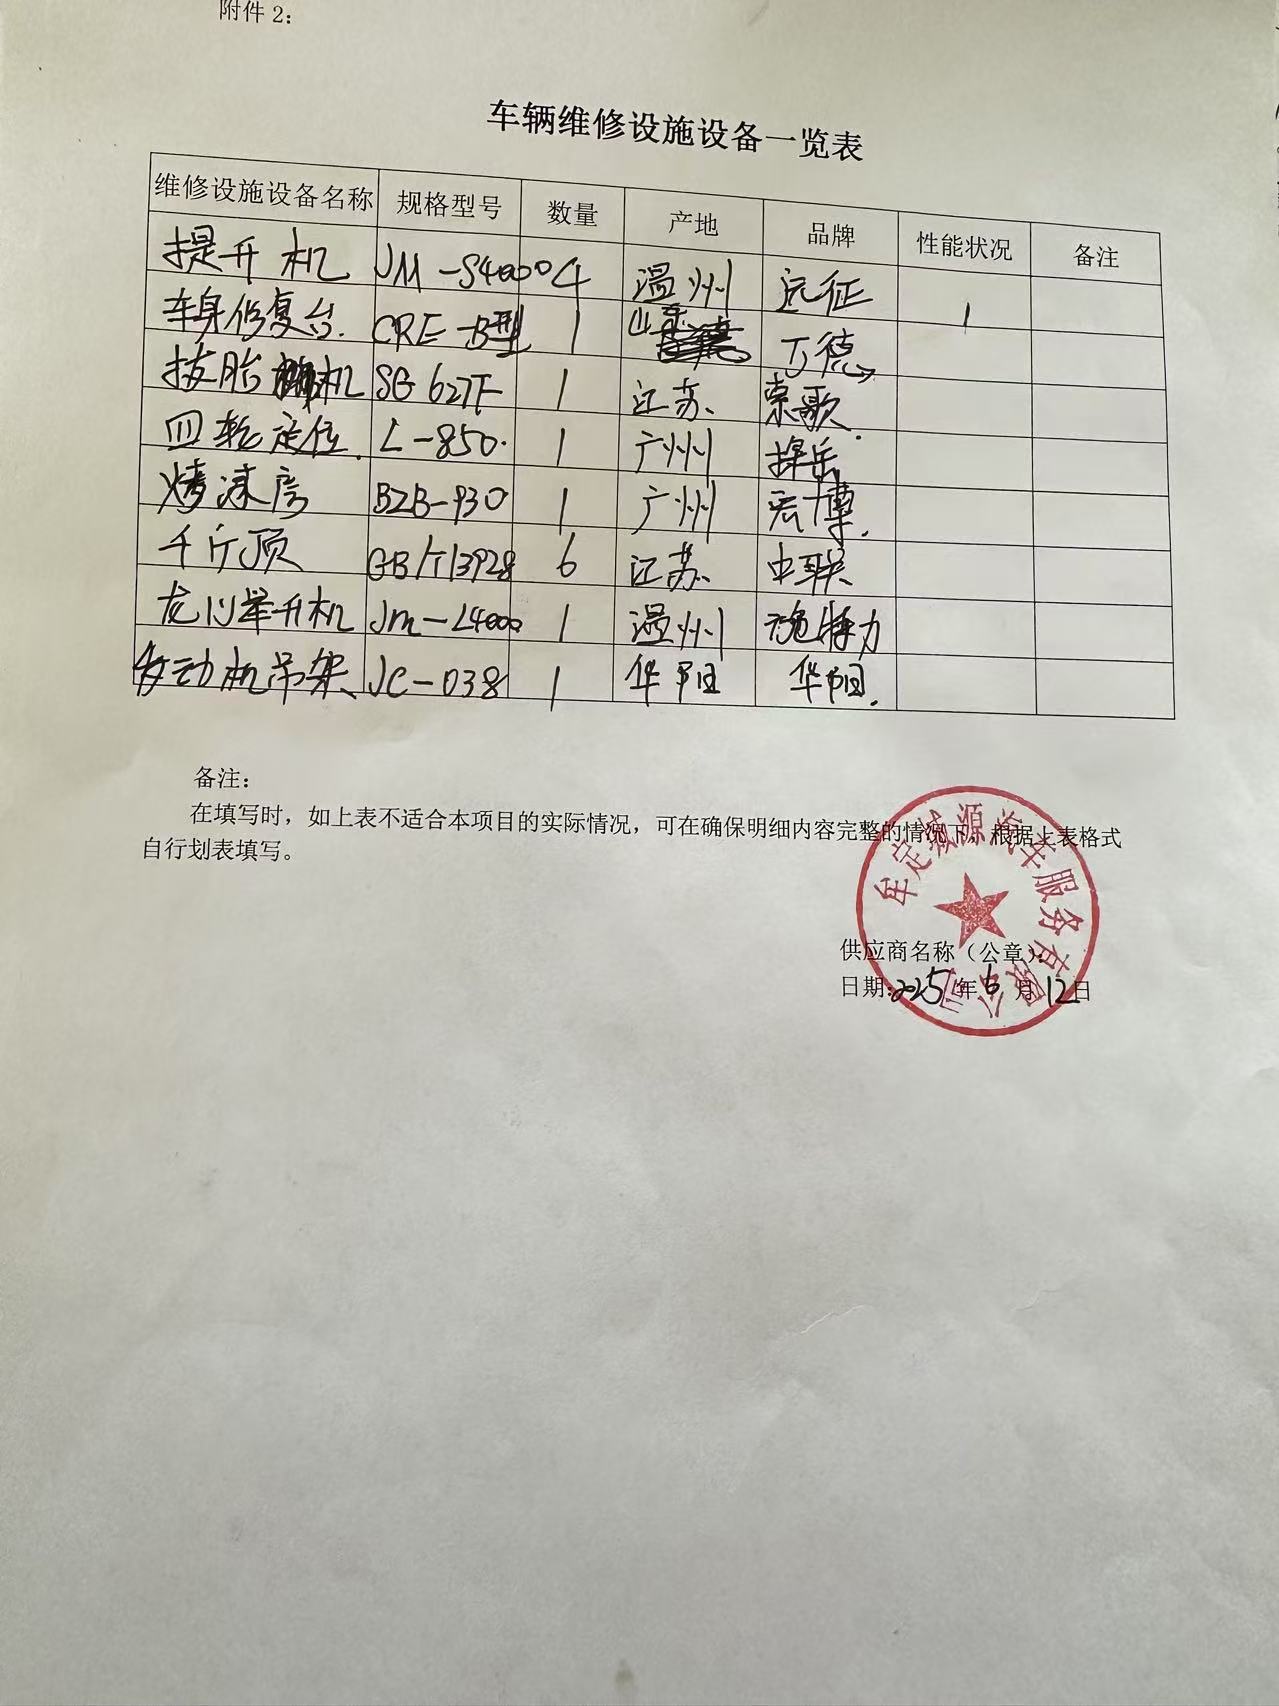 附件 2：
车辆维修设施设备一览表
维修设施设备名称 规格型号 数量 产地 品牌 性能状况 备注
提升机 JM-S4000 4 温州 远征
车身修复台. CRE-B型 1 山东 万德
拔胎机 SG 627F 1 江苏. 索歌.
四轮定位. L-850. 1 广州
烤漆房 BZB-930 1 广州 宏博.
千斤顶 GB/T13928 6 江苏. 中联
龙门举升机 Jm-L4000 1 温州
发动机吊架 JC-038 1 华阳 华阳.
备注：
在填写时，如上表不适合本项目的实际情况，可在确保明细内容完整的情况下，根据上表格式
自行划表填写。
牟定城源汽车服务有限公司
供应商名称（公章）：
日期：2025年6月12日